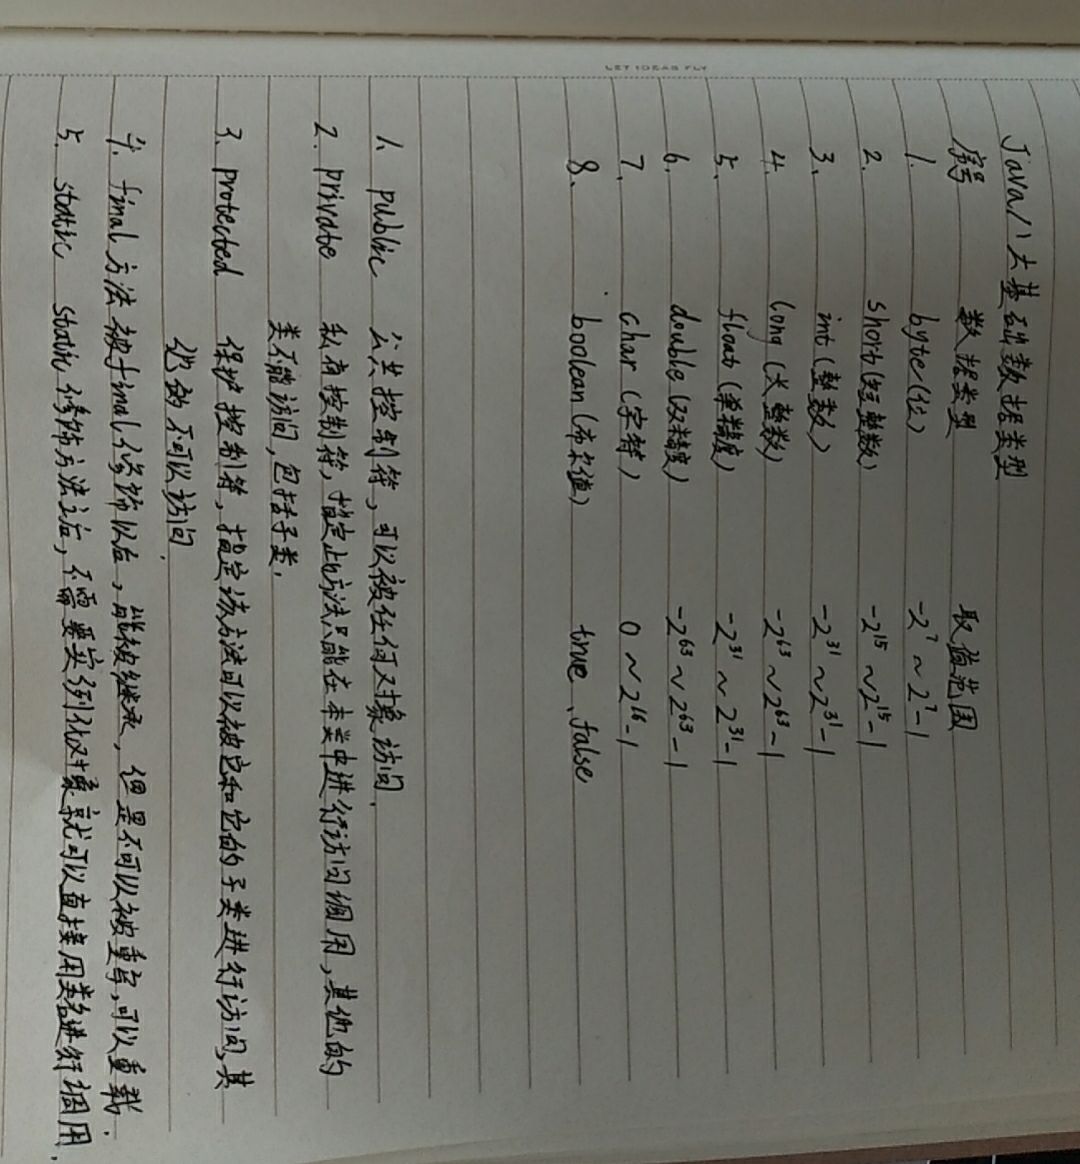 LET IDEAS FLY
Java八大基础数据类型
序号 数据类型 取值范围
1. byte(位) -2⁷~2⁷-1
2. short(短整数) -2¹⁵~2¹⁵-1
3. int(整数) -2³¹~2³¹-1
4. long(大整数) -2⁶³~2⁶³-1
5. float(单精度) -2³¹~2³¹-1
6. double(双精度) -2⁶³~2⁶³-1
7. char(字符) 0~2¹⁶-1
8. boolean(布尔值) true、false
1. public 公共控制符,可以被任何对象访问.
2. private 私有控制符,指定此方法只能在本类中进行访问调用,其他的
类不能访问,包括子类.
3. protected 保护控制符,指定该方法可以被它和它的子类进行访问,其
他的不可以访问.
4. final方法 被final修饰以后,能被继承,但是不可以被重写,可以重载.
5. static static修饰方法之后,不需要实例化对象就可以直接用类名进行调用.